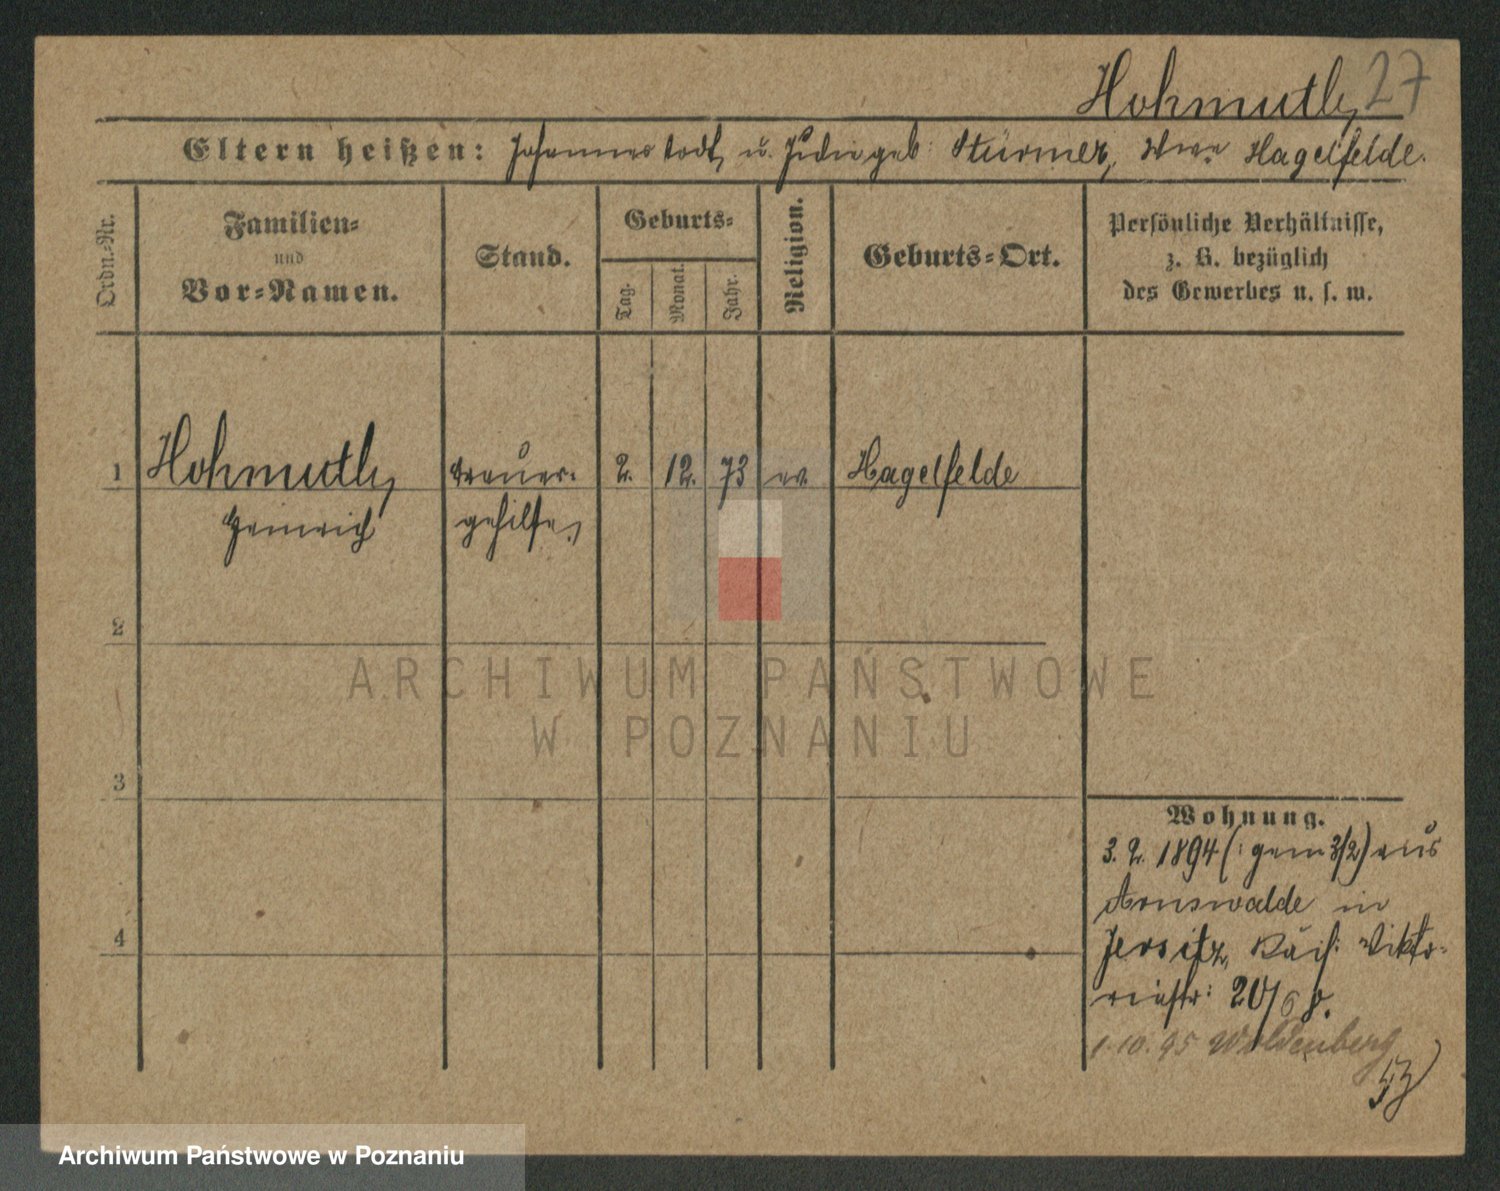 Hohmuth, 27
Eltern heißen: Johannes todt, u. geb: Stürmer, Wwe Hagelfelde.
Ordn.-Nr.
Familien-
und
Vor-Namen.
Stand.
Geburts-
Tag.
Monat.
Jahr.
Religion.
Geburts-Ort.
Persönliche Verhältnisse,
z. B. bezüglich
des Gewerbes u. s. w.
1 Hohmuth, Brauer- 2. 12. 73 ev. Hagelfelde
Heinrich gehilfe,
2
3
4
Wohnung.
3. 2. 1894 (: gem 3/2) aus
Arnswalde in
Jersitz, Vikto-
riastr: 20/
1.10.95 Woldenberg
ARCHIWUM PAŃSTWOWE
W POZNANIU
Archiwum Państwowe w Poznaniu